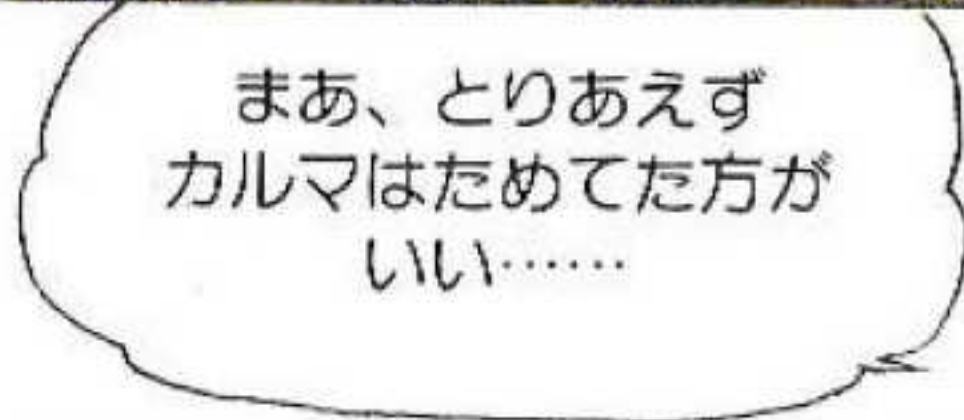 まあ、とりあえず
カルマはためてた方が
いい……